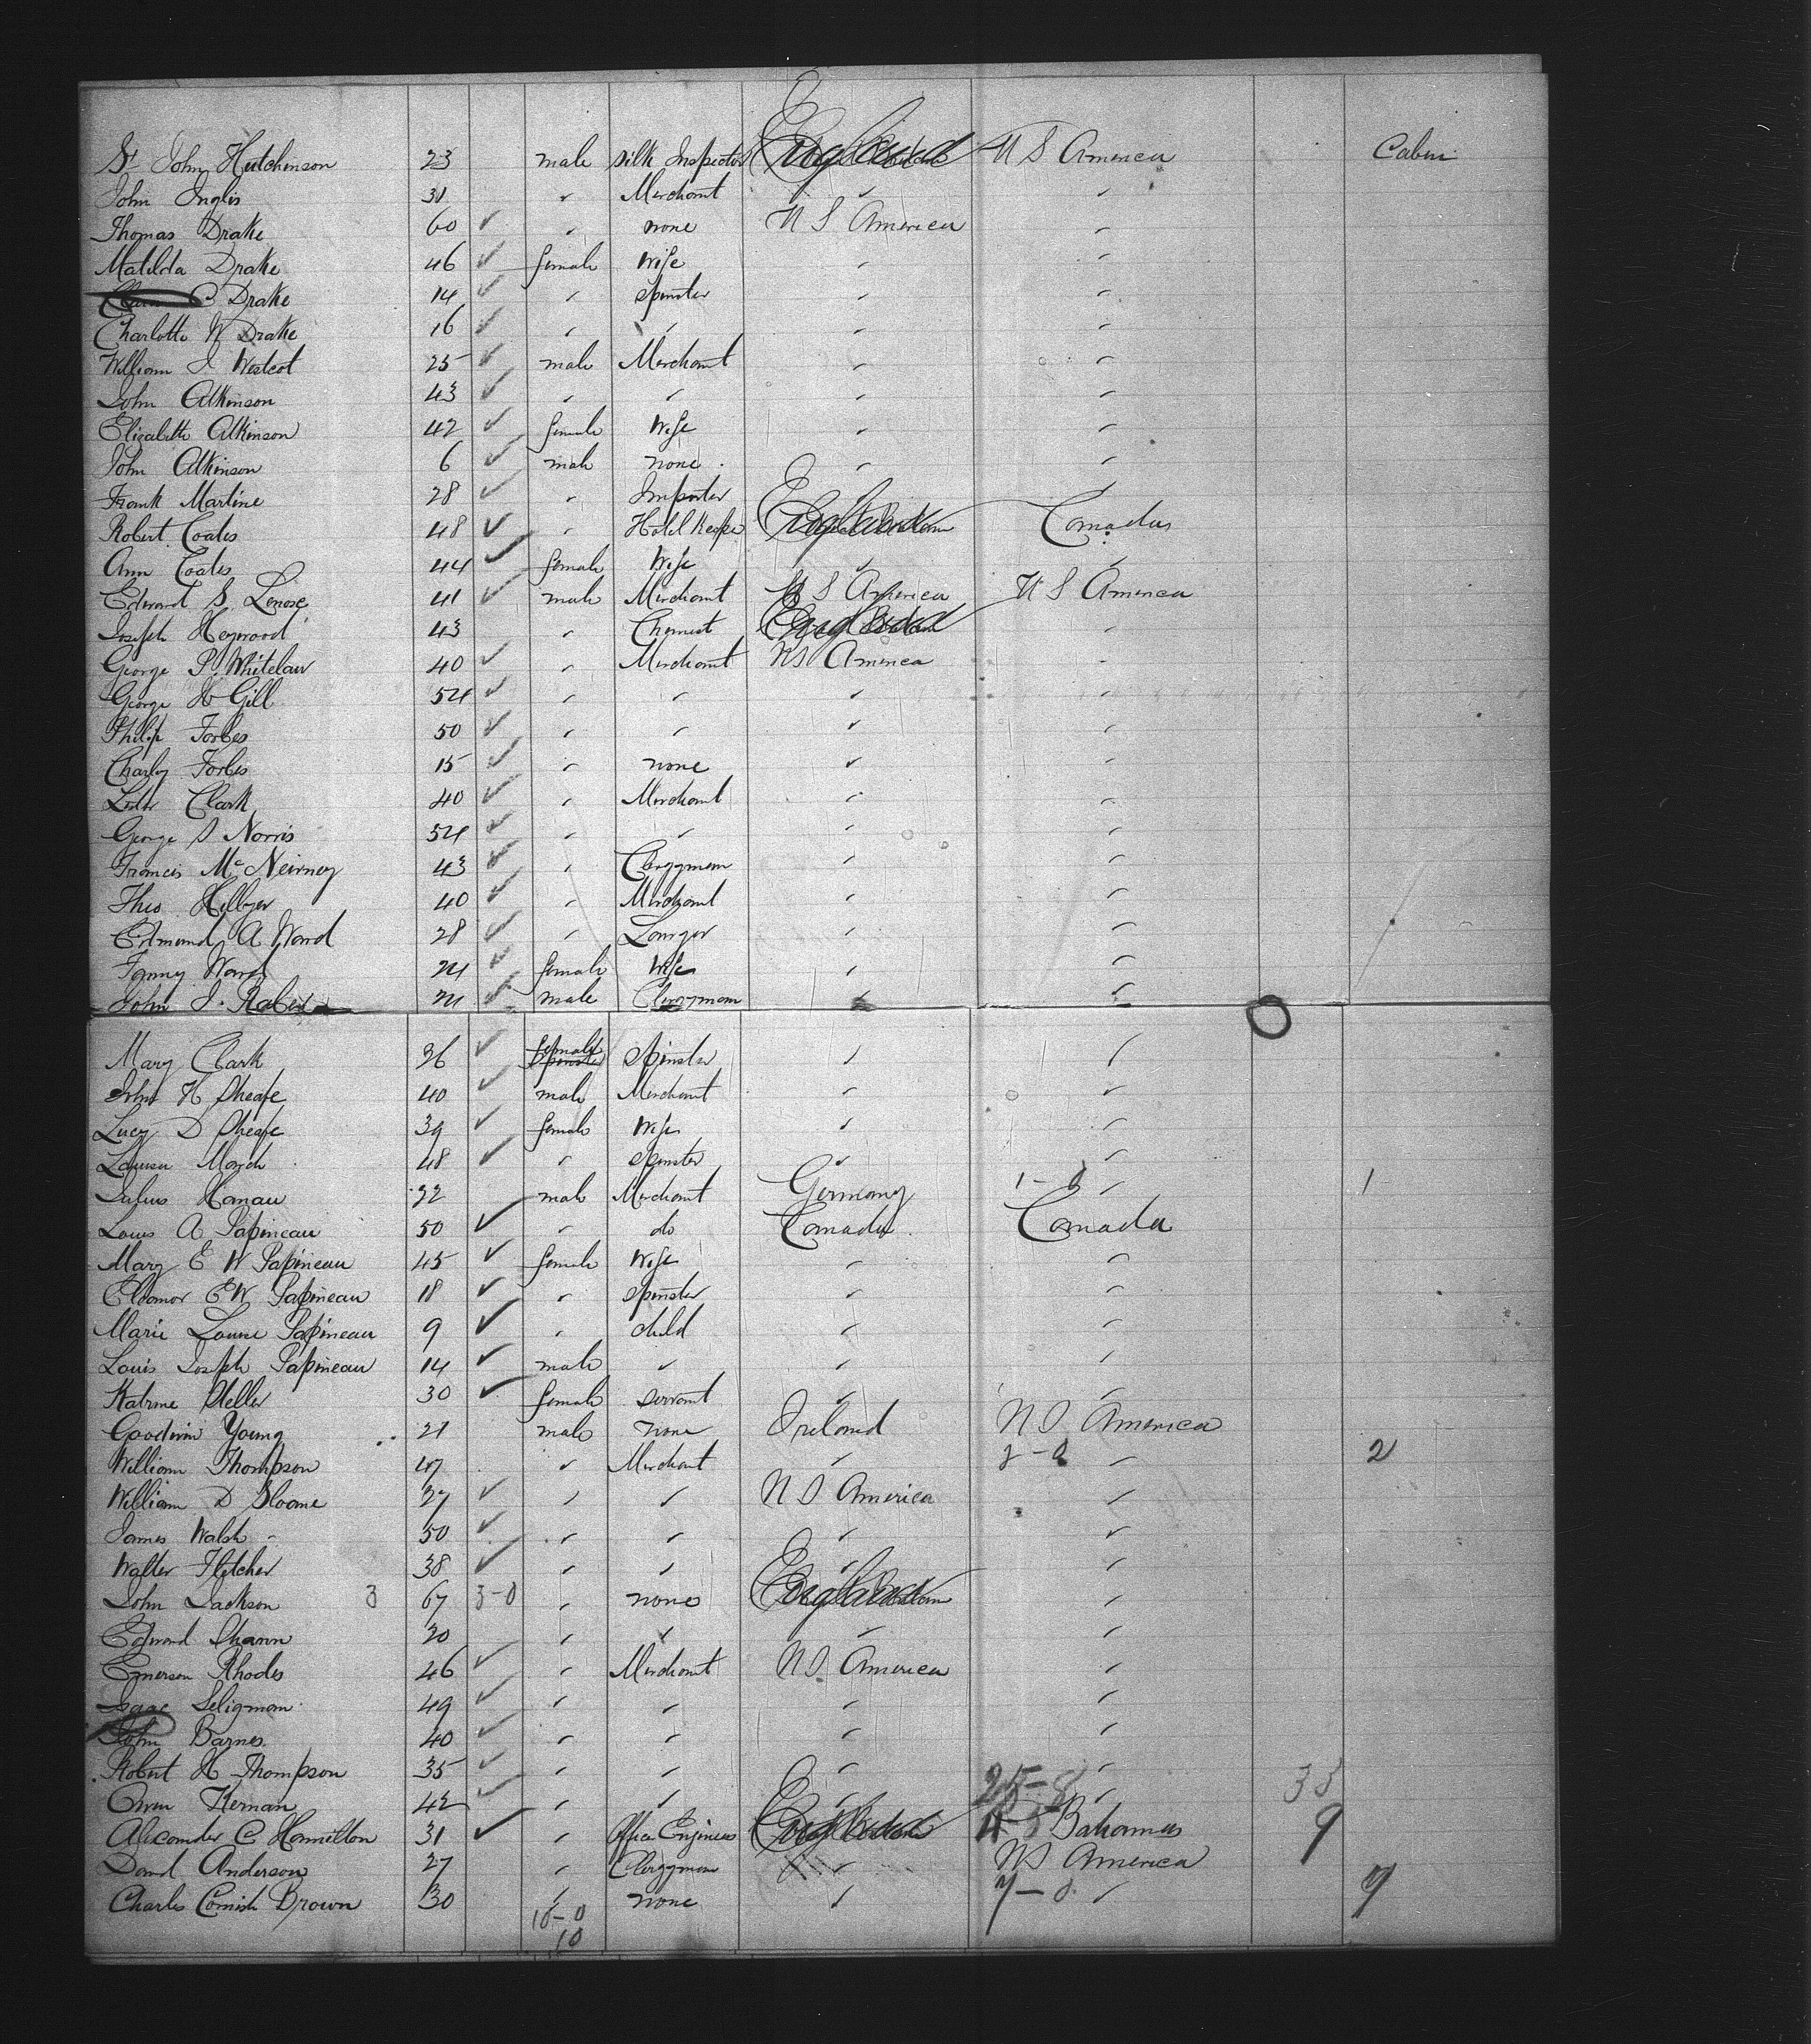 St John Hutchinson 23 male Silk Inspector England U S America Cabin
John Inglis 31 " Merchant " "
Thomas Drake 60 ✓ " none U S America "
Matilda Drake 46 ✓ female Wife " "
C Drake 14 ✓ " Spinster " "
Charlotte W Drake 16 ✓ " " " "
William J Westcot 25 ✓ male Merchant " "
John Atkinson 43 ✓ " " " "
Elizabeth Atkinson 42 ✓ female Wife " "
John Atkinson 6 ✓ male none " "
Frank Martine 28 ✓ " Importer " "
Robert Coates 48 ✓ " Hotel Keeper England Canada
Ann Coates 44 ✓ female Wife " "
Edward S 41 ✓ male Merchant U S America U S America
Joseph Heywood 43 " Chemist England "
George P Whitelaw 40 ✓ " Merchant U S America "
George H Gill 54 ✓ " " " "
Philip Forbes 50 ✓ " " " "
Charley Forbes 15 ✓ " none " "
Clark 40 ✓ " Merchant " "
George S Norris 54 ✓ " " " "
Francis McNeirney 43 ✓ " Clergyman " "
Theo Hillyer 40 ✓ " Merchant " "
Edmund A Ward 28 ✓ " Lawyer " "
Fanny Ward 24 ✓ female Wife " "
John J. 24 ✓ male Clergyman " "
Mary Clark 36 ✓ female Spinster Spinster " "
John H Sheafe 40 ✓ male Merchant " "
Lucy D Sheafe 39 ✓ female Wife " "
Louisa 48 ✓ " Spinster " "
Julius Hanau 32 male Merchant Germany 1-0 " 1
Louis A Papineau 50 ✓ " do Canada Canada
Mary E W Papineau 45 ✓ female Wife " "
Eleonor E W Papineau 18 ✓ " Spinster " "
Marie Louise Papineau 9 ✓ " child " "
Louis Joseph Papineau 14 ✓ male " " "
Katrine 30 ✓ female servant " "
Goodwin Young 21 male none Ireland U S America
William Thompson 47 " Merchant " 2-0 " 2
William D Sloane 27 ✓ " " U S America "
James Walsh 50 ✓ " " " "
Walter Fletcher 38 ✓ " " " "
John Jackson 3 67 3-0 " none England "
Edward Shann 20 " " " "
Emerson Rhodes 46 ✓ " Merchant U S America "
Isaac Seligman 49 ✓ " " " "
John Barnes 40 ✓ " " " "
Robert H Thompson 35 ✓ " " " "
Owen Kernan 42 ✓ " " " 25-8 " 33
Alexander C Hamilton 31 ✓ " Engineer England Bahamas 9
David Anderson 27 " Clergyman " U S America
Charles Cornish Brown 30 " none " 7-0 " 7
10-0
10